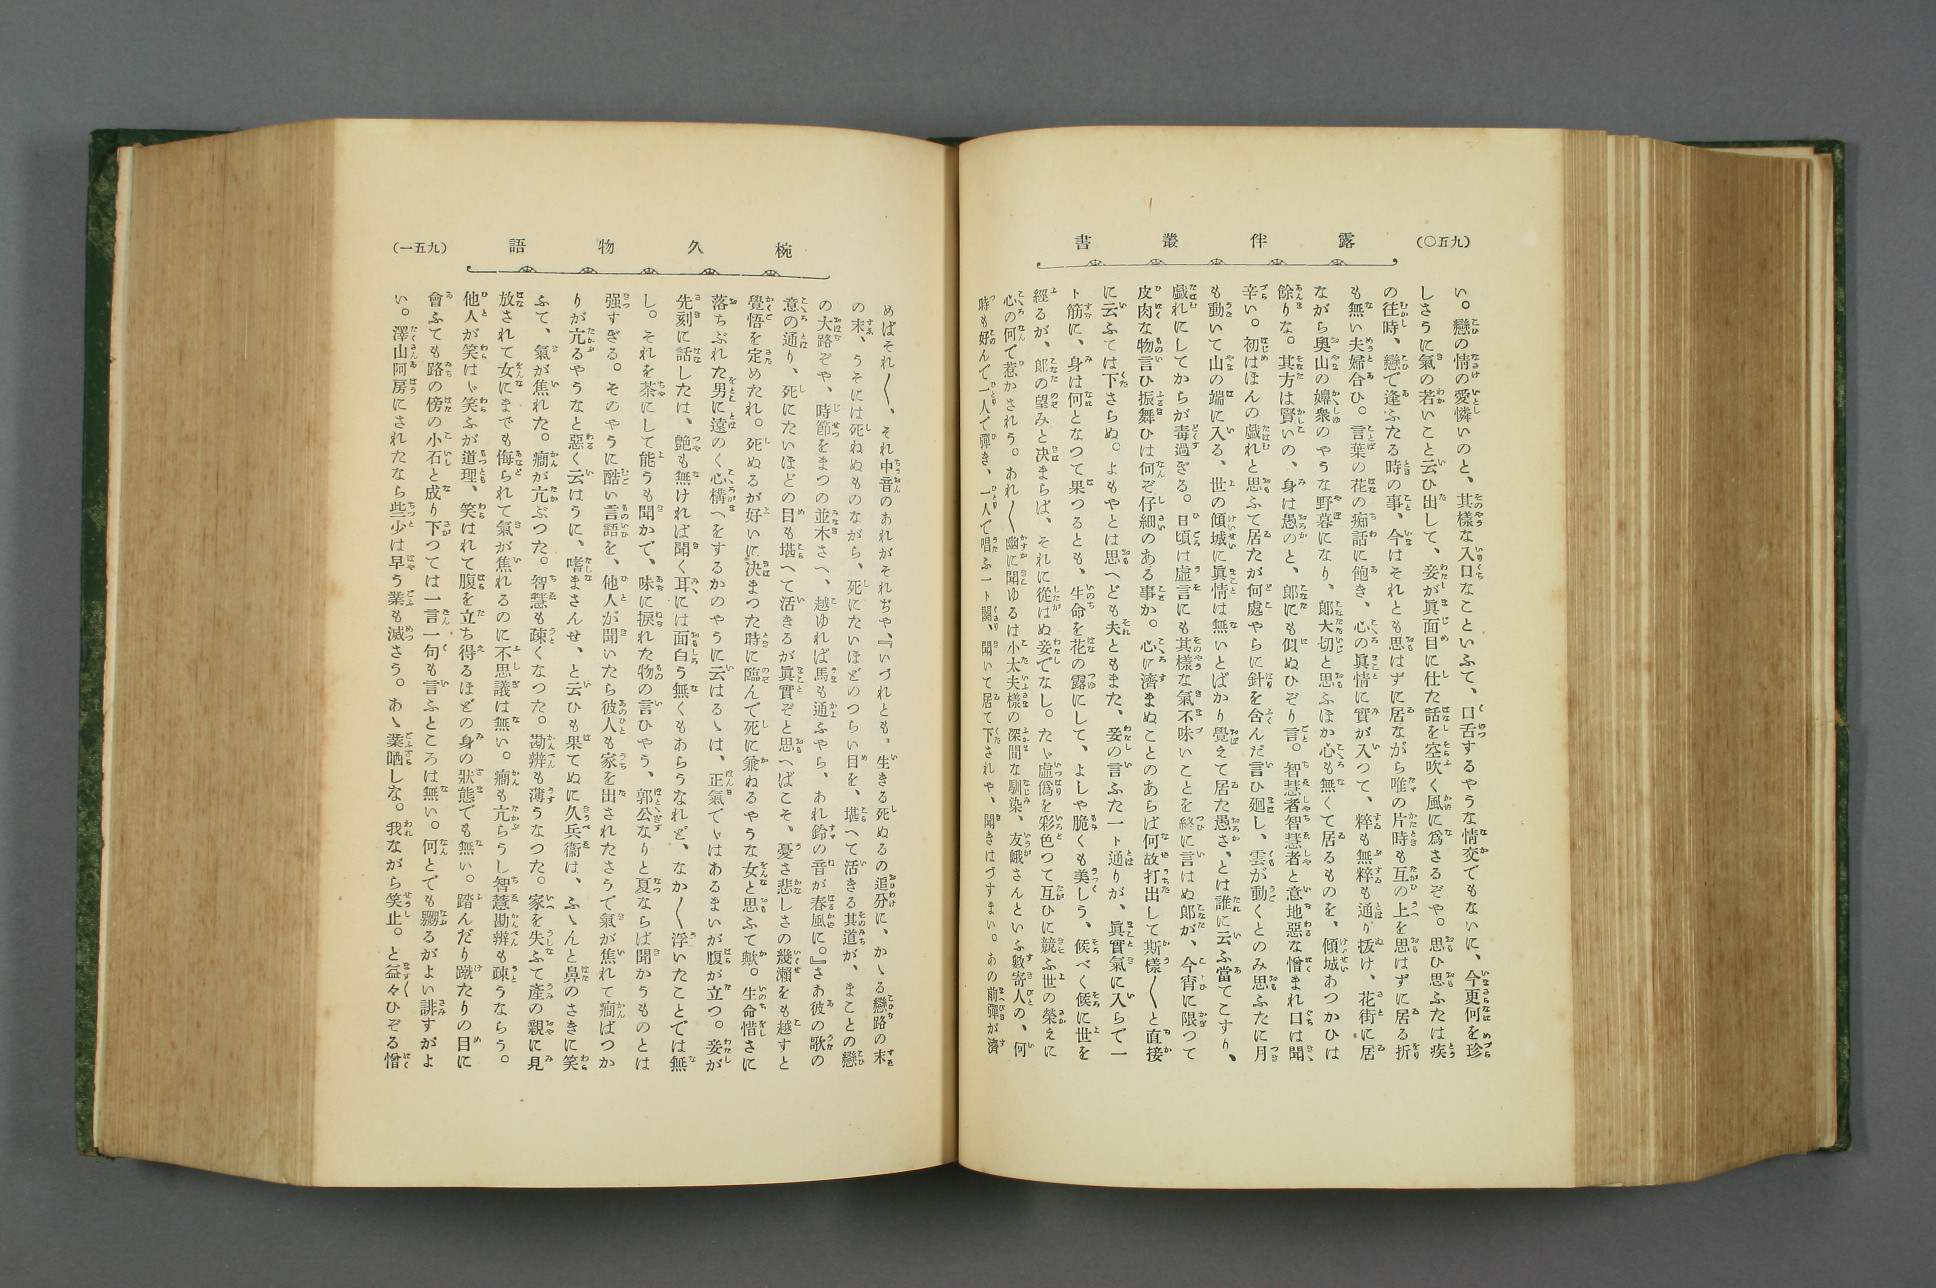 (九五〇)
露伴叢書
い。戀の情の愛憐いのと、其樣な入口なこといふて、口舌するやうな情交でもないに、今更何を珍
しさうに氣の若いこと云ひ出して、妾が眞面目に仕た話を空吹く風に爲さるぞや。思ひ思ふたは疾
の往時、戀で逢ふたる時の事、今はそれとも思はずに居ながら唯の片時も互の上を思はずに居る折
も無い夫婦合ひ。言葉の花の痴話に飽き、心の眞情に實が入つて、粹も無粹も通り拔け、花街に居
ながら奧山の嬶衆のやうな野暮になり、郞大切と思ふほか心も無くて居るものを、傾城あつかひは
餘りな。其方は賢いの、身は愚のと、郞にも似ぬひぞり言。智慧者智慧者と意地惡な憎まれ口は聞
辛い。初はほんの戯れと思ふて居たが何處やらに針を含んだ言ひ廻し、雲が動くとのみ思ふたに月
も動いて山の端に入る、世の傾城に眞情は無いとばかり覺えて居た愚さ、とは誰に云ふ當てこすり、
戯れにしてからが毒過ぎる。日頃は虛言にも其樣な氣不味いことを終に言はぬ郞が、今宵に限つて
皮肉な物言ひ振舞ひは何ぞ仔細のある事か。心に濟まぬことのあらば何故打出して斯樣〱と直接
に云ふては下さらぬ。よもやとは思へども夫ともまた、妾の言ふた一ト通りが、眞實氣に入らで一
ト筋に、身は何となつて果つるとも、生命を花の露にして、よしや脆くも美しう、候べく候に世を
經るが、郞の望みと決まらば、それに從はぬ妾でなし。たゞ虛僞を彩色つて互ひに競ふ世の榮えに
心の何で惹かされう。あれ〱幽に聞ゆるは小太夫樣の深間な馴染、友峨さんといふ數寄人の、何
時も好んで一人で彈き、一人で唱ふ一ト鬮、聞いて居て下されや、聞きはづすまい。あの前彈が濟
椀久物語
(九五一)
めばそれ〱、それ中音のあれがそれぢや、『いづれとも、生きる死ぬるの追分に、かゝる戀路の末
の末、うそには死ねぬものながら、死にたいほどのつらい目を、堪へて活きる其道が、まことの戀
の大路ぞや、時節をまつの並木さへ、越ゆれば馬も通ふやら、あれ鈴の音が春風に。』さあ彼の歌の
意の通り、死にたいほどの目も堪へて活きるが眞實ぞと思へばこそ、憂さ悲しさの幾瀨をも越すと
覺悟を定めたれ。死ぬるが好いに決まつた時に臨んで死に兼ねるやうな女と思ふて歟。生命惜さに
落ちぶれた男に遠のく心構へをするかのやうに云はるゝは、正氣でゞはあるまいが腹が立つ。妾が
先刻に話したは、艶も無ければ聞く耳には面白う無くもあらうなれど、なか〱浮いたことでは無
し。それを茶にして能うも聞かで、味に捩れた物の言ひやう、郭公なりと夏ならば聞かうものとは
强すぎる。そのやうに酷い言語を、他人が聞いたら彼人も家を出されたさうで氣が焦れて癎ばつか
りが亢るやうなと惡く云はうに、嗜まさんせ、と云ひも果てぬに久兵衞は、ふゝんと鼻のさきに笑
ふて、氣が焦れた。癎が亢ぶつた。智慧も疎くなつた。勘辨も薄うなつた。家を失ふて產の親に見
放されて女にまでも侮られて氣が焦れるのに不思議は無い。癎も亢らうし智慧勘辨も疎うならう。
他人が笑はゞ笑ふが道理、笑はれて腹を立ち得るほどの身の狀態でも無い。踏んだり蹴たりの目に
會ふても路の傍の小石と成り下つては一言一句も言ふところは無い。何とでも嬲るがよい誹すがよ
い。澤山阿房にされたなら些少は早う業も滅さう。あゝ業晒しな。我ながら笑止。と益々ひぞる憎